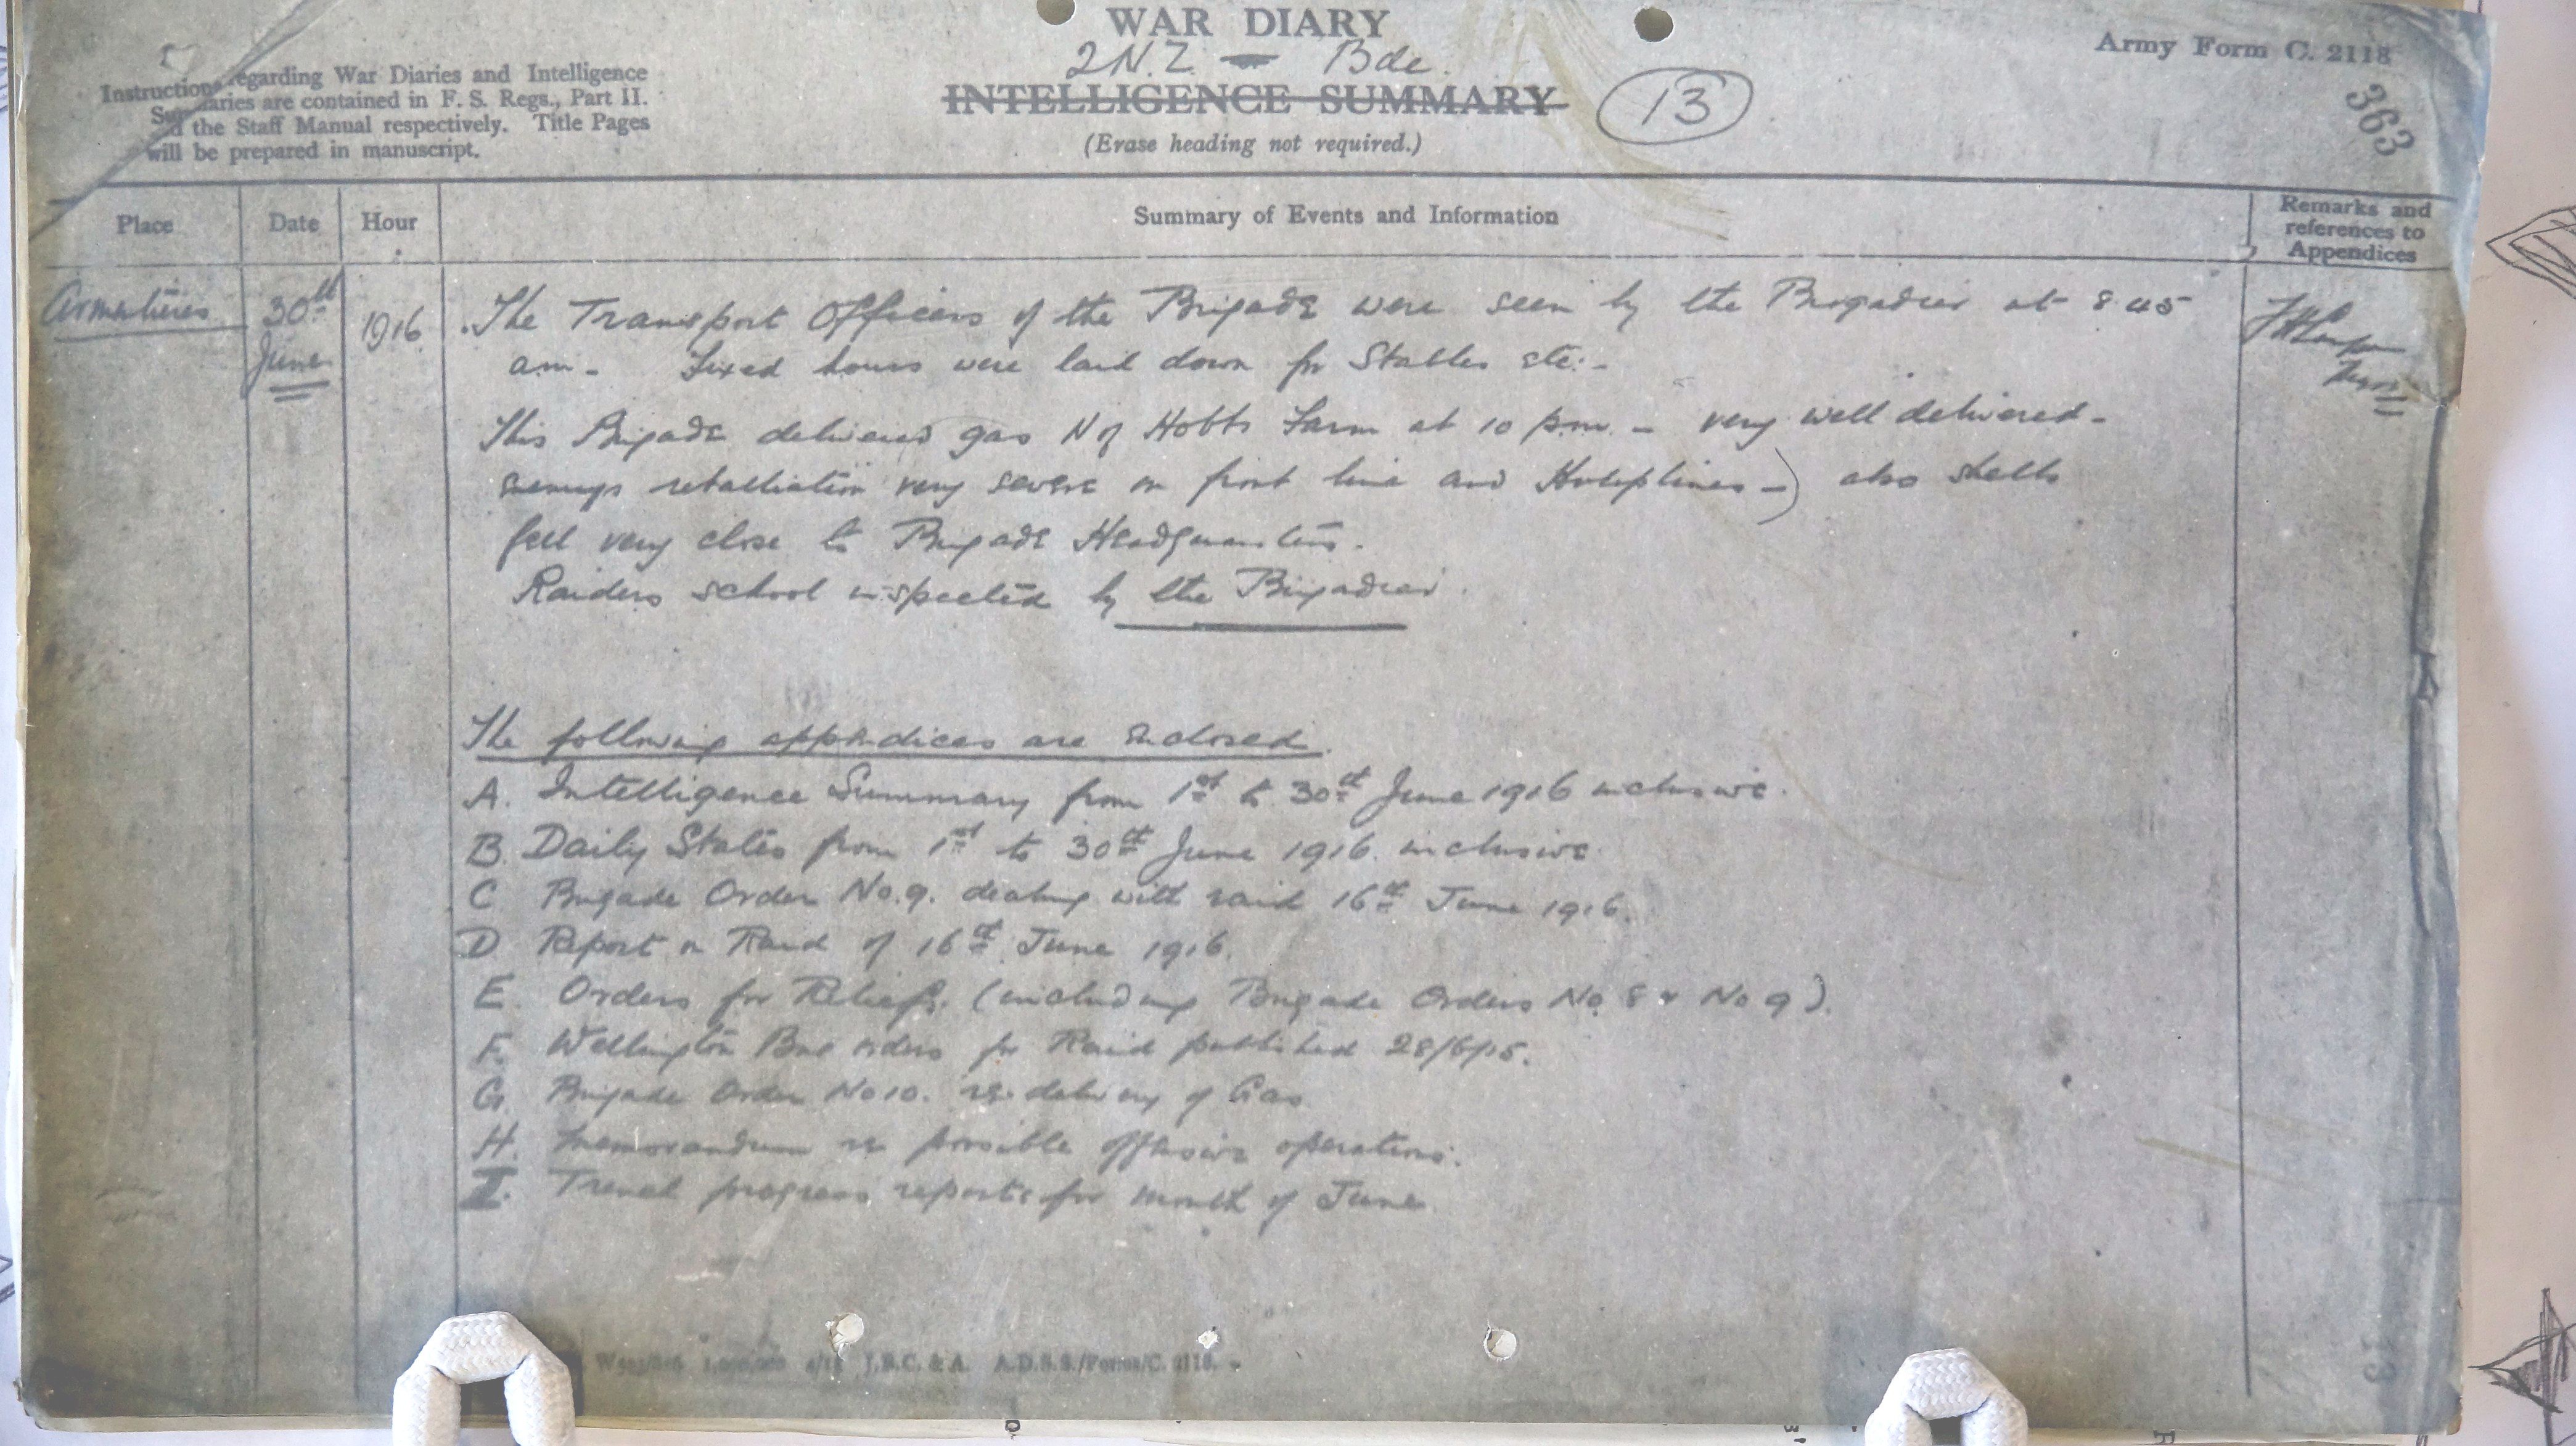 WAR DIARY
Army Form C. 2118
2 N.Z. Bde.
Instructions regarding War Diaries and Intelligence
INTELLIGENCE SUMMARY
13
363
Summaries are contained in F. S. Regs., Part II.
and the Staff Manual respectively. Title Pages
will be prepared in manuscript.
(Erase heading not required.)
Place
Date
Hour
Summary of Events and Information
Remarks and
references to
Appendices
Armentières
30th
June
1916
The Transport Officers of the Brigade were seen by the Brigadier at 8.45
am - Fixed hours were laid down for Stables etc: -
This Brigade delivered gas N of Hobbs Farm at 10 pm. - very well delivered -
enemys retalliation very severe on front line and Houplines -) also shells
fell very close to Brigade Headquarters.
Raiders school inspected by the Brigadier.
The following appendices are enclosed.
A. Intelligence Summary from 1st to 30th June 1916 inclusive.
B. Daily States from 1st to 30th June 1916. inclusive.
C Brigade Order No. 9. dealing with raid 16th June 1916.
D Report on Raid of 16th June 1916.
E. Orders for Reliefs. (including Brigade Orders No. 8 & No 9).
F. Wellington Bns orders for Raid published 28/6/15.
G. Brigade Order No 10. re delivery of Gas
H. Memorandum re possible offensive operations.
I. Trench progress reports for month of June
J.B.C. & A. A.D.S.S./Forms/C. 2118.
13